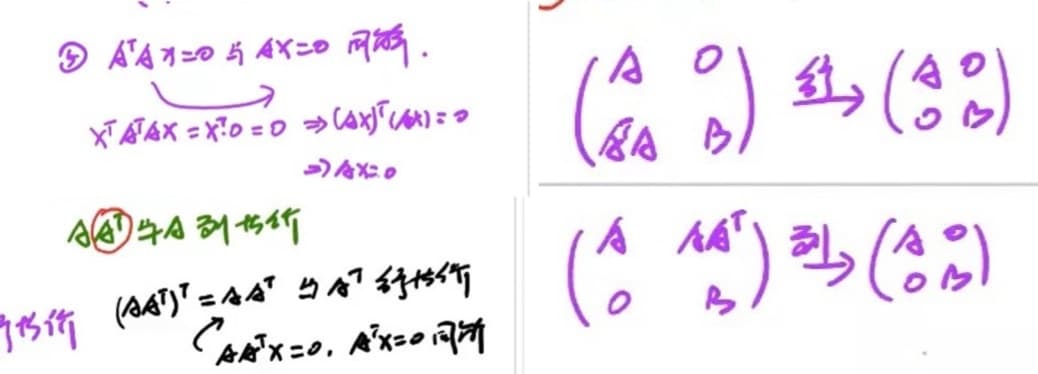 ⑤ AᵀAx=0 与 Ax=0 同解.
xᵀAᵀAx = xᵀ·0 = 0 ⇒ (Ax)ᵀ(Ax) = 0
⇒ Ax=0
AAᵀ 与 A 列等价
(AAᵀ)ᵀ = AAᵀ 与 Aᵀ 行等价
AAᵀx=0, Aᵀx=0 同解
等价
( A 0 ) 行→ ( A 0 )
( AᵀA B ) ( 0 B )
( A AAᵀ ) 列→ ( A 0 )
( 0 B ) ( 0 B )